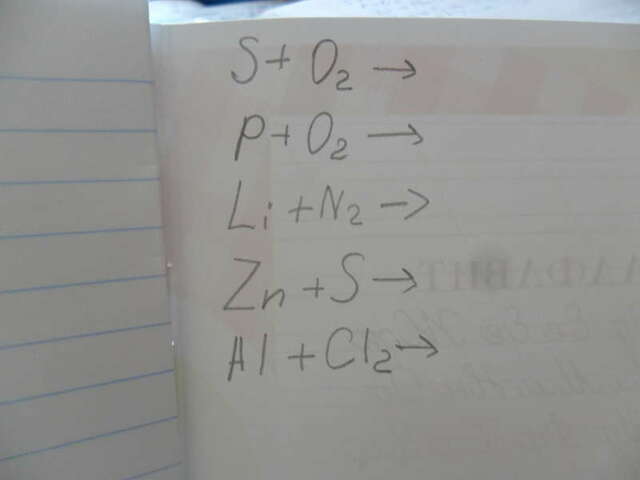 S + O₂ →
P + O₂ →
Li + N₂ →
Zn + S →
Al + Cl₂ →